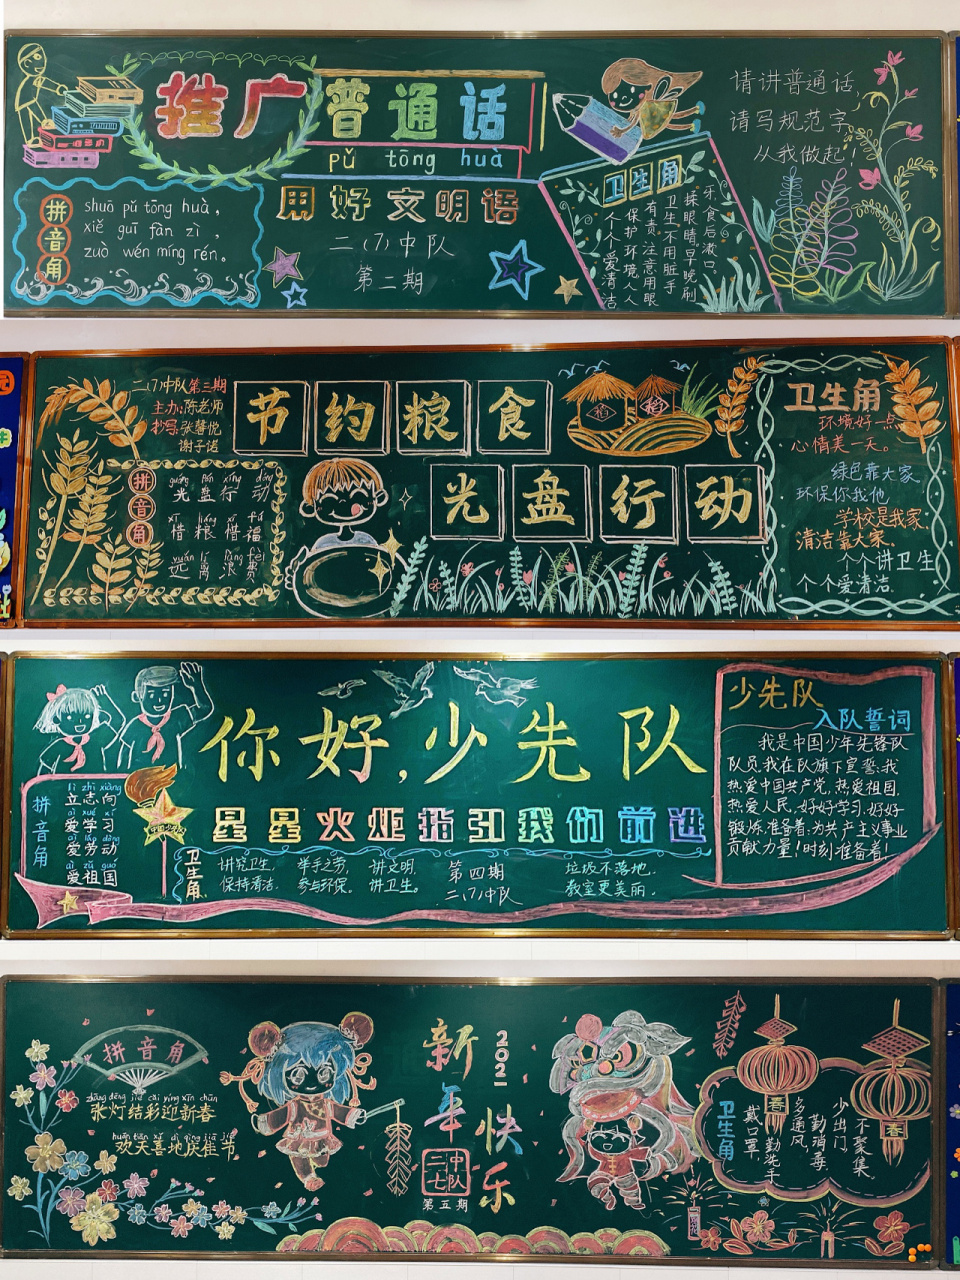 推广普通话
pǔ tōng huà
用好文明语
二(7)中队
第二期
拼音角
shuō pǔ tōng huà，
xiě guī fàn zì ，
zuò wén míng rén。
卫生角
牙，食后漱口。
揉眼睛早晚刷
卫生不用脏手
有责注意用眼
保护环境人人
个个爱清洁
请讲普通话，
请写规范字，
从我做起！
二(7)中队第三期
主办：陈老师
抄写：张馨悦
谢子诺
节约粮食
光盘行动
拼音角
guāng pán xíng dòng
光盘行动
xī liáng xī fú
惜粮惜福
yuǎn lí làng fèi
远离浪费
稻
稻
卫生角
环境好一点
心情美一天。
绿色靠大家
环保你我他
学校是我家，
清洁靠大家。
个个讲卫生
个个爱清洁。
你好，少先队
星星火炬指引我们前进
拼音角
lì zhì xiàng
立志向
ài xué xí
爱学习
ài láo dòng
爱劳动
ài zǔ guó
爱祖国
卫生角
讲究卫生，
保持清洁。
举手之劳，
参与环保。
讲文明，
讲卫生。
第四期
二(7)中队
垃圾不落地，
教室更美丽。
少先队
入队誓词
我是中国少年先锋队
队员，我在队旗下宣誓：我
热爱中国共产党，热爱祖国，
热爱人民，好好学习，好好
锻炼，准备着：为共产主义事业
贡献力量！时刻准备着！
拼音角
zhāng dēng jié cǎi yíng xīn chūn
张灯结彩迎新春
huān tiān xǐ dì qìng jiā jié
欢天喜地庆佳节
新年快乐
2021
二七中队
第五期
卫生角
少出门，不聚集，
勤消毒，
多通风，
戴口罩，勤洗手
春
春